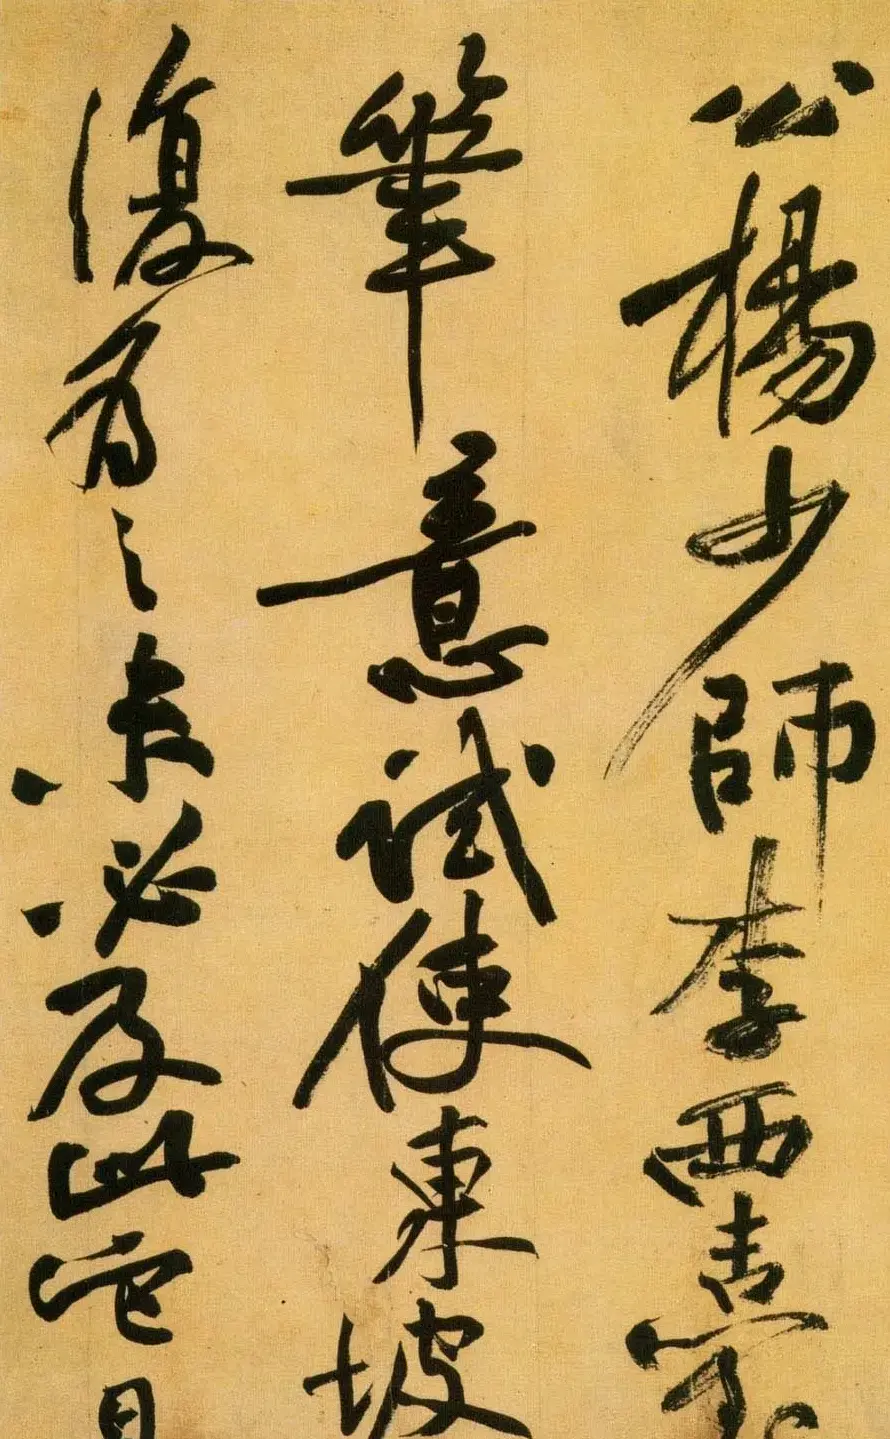 公楊少師李西臺
筆意試使東坡
復爲之未必及此它日